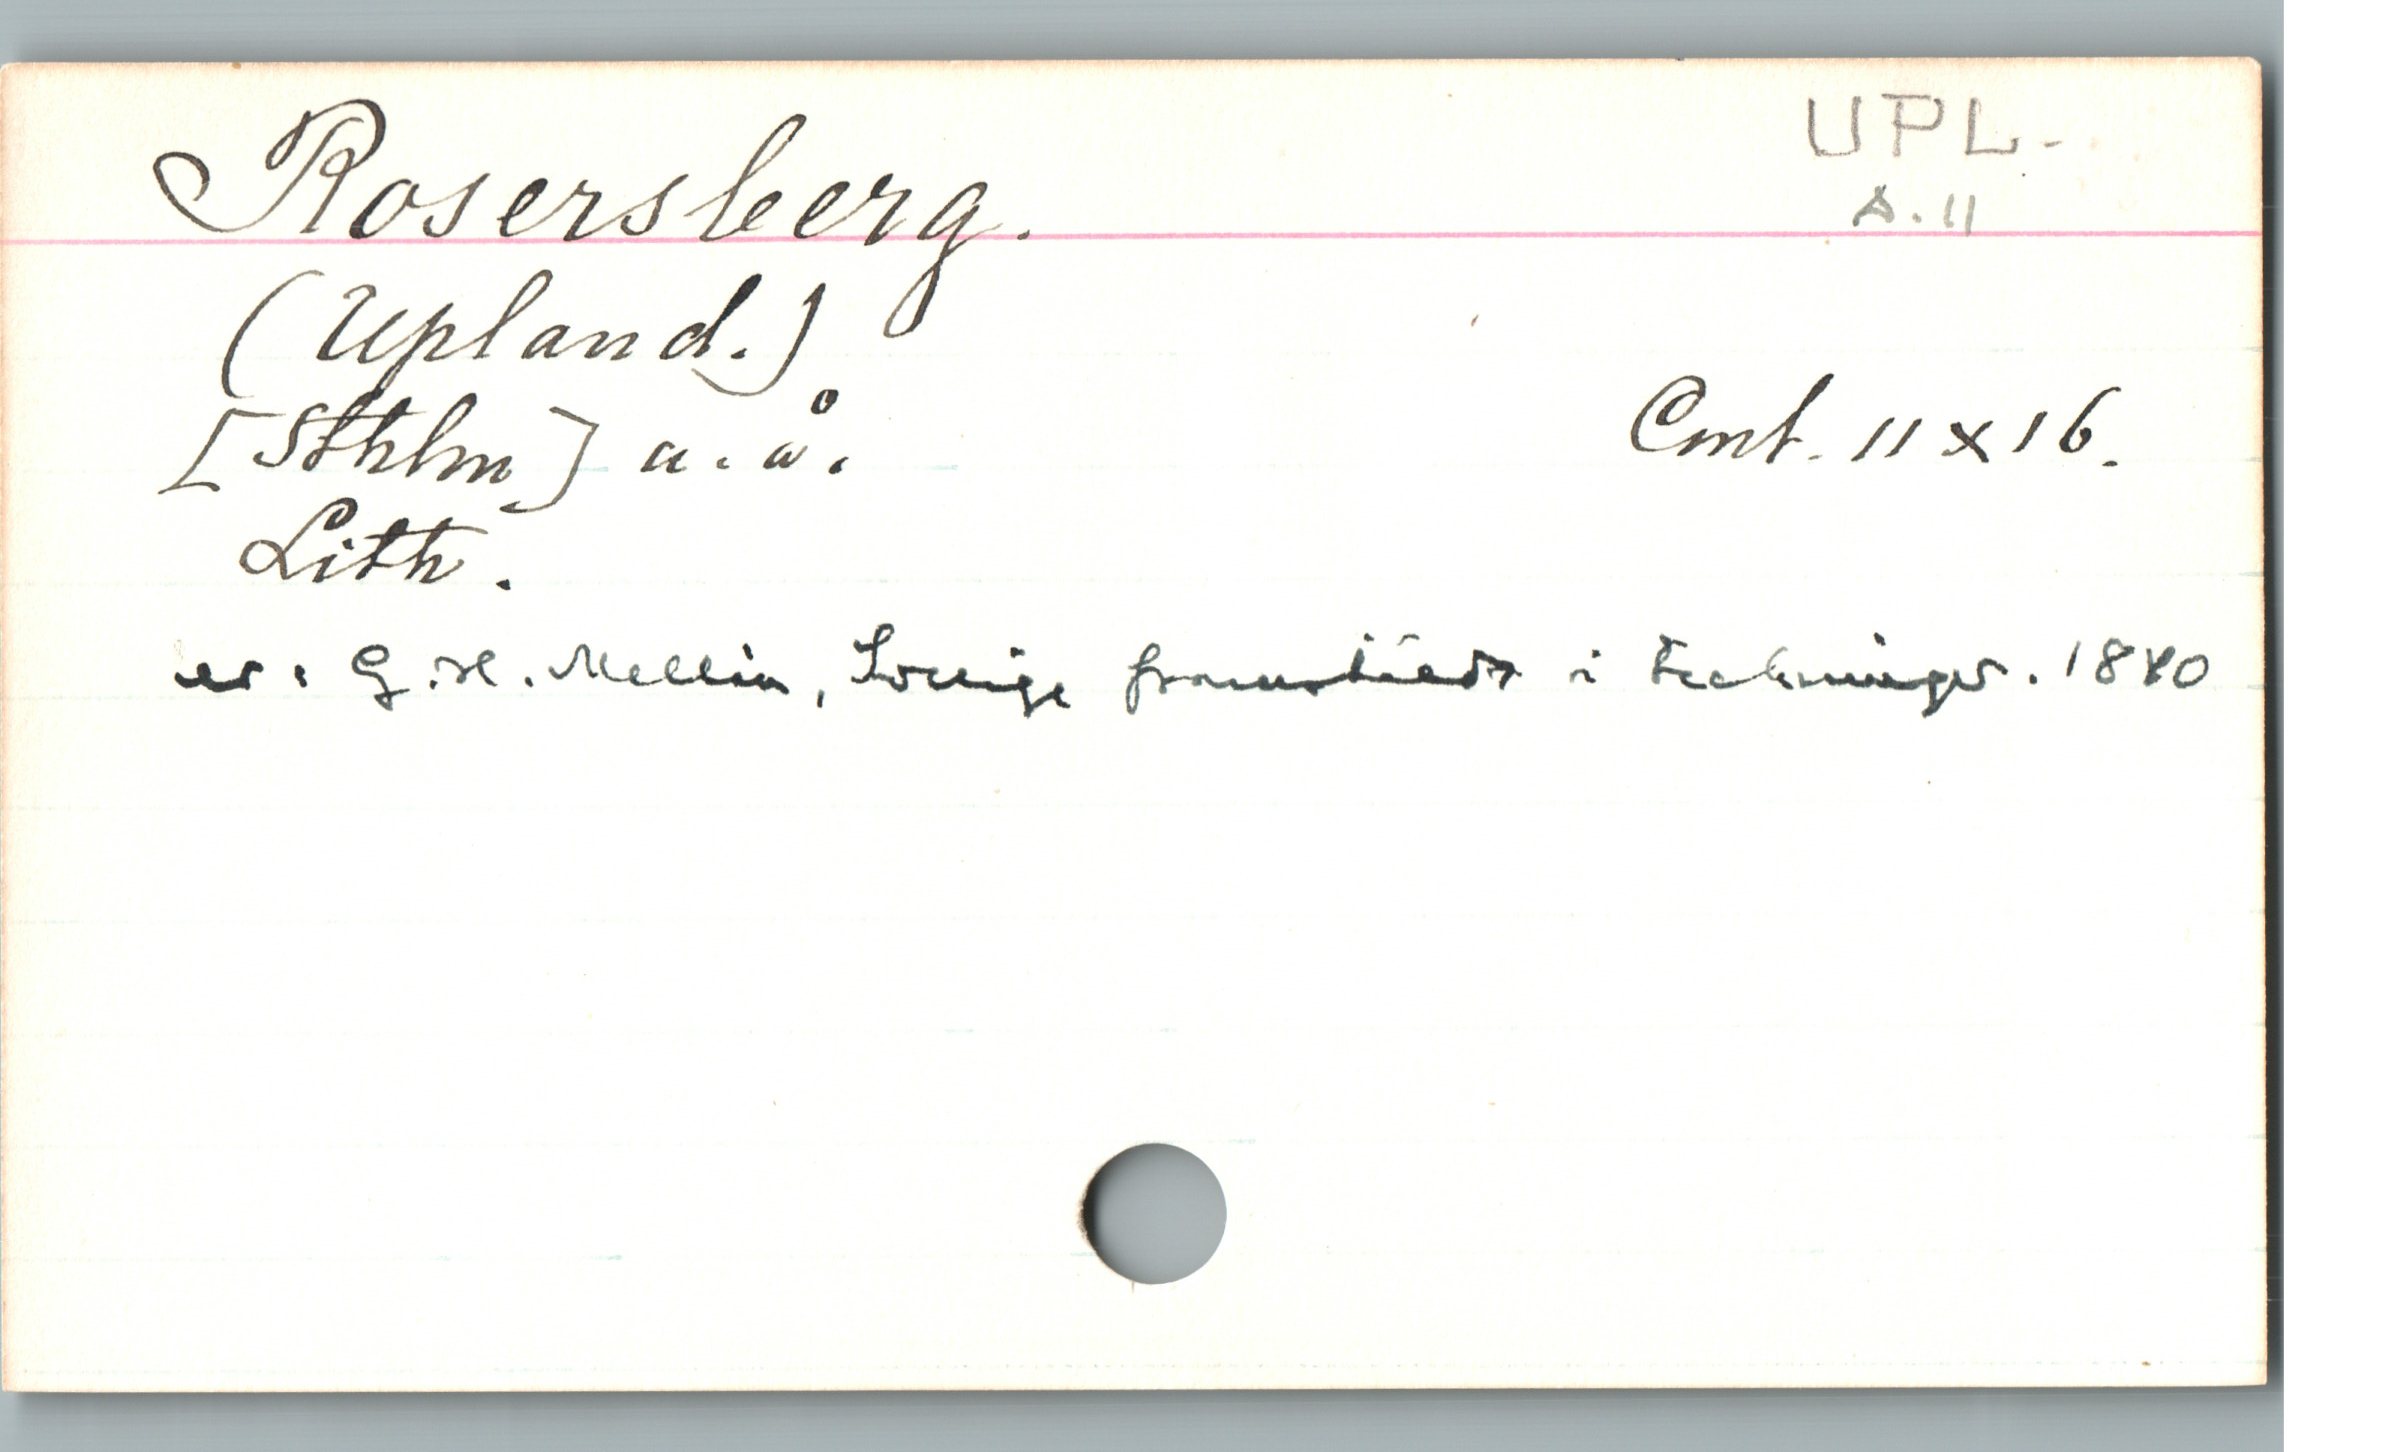 Rosersberg.
UPL.
A.11
(Upland.)
[Sthlm] u. å.
Cmt. 11 x 16.
Lith.
ur: G. H. Mellin, Sverige framstäldt i teckningar. 1840